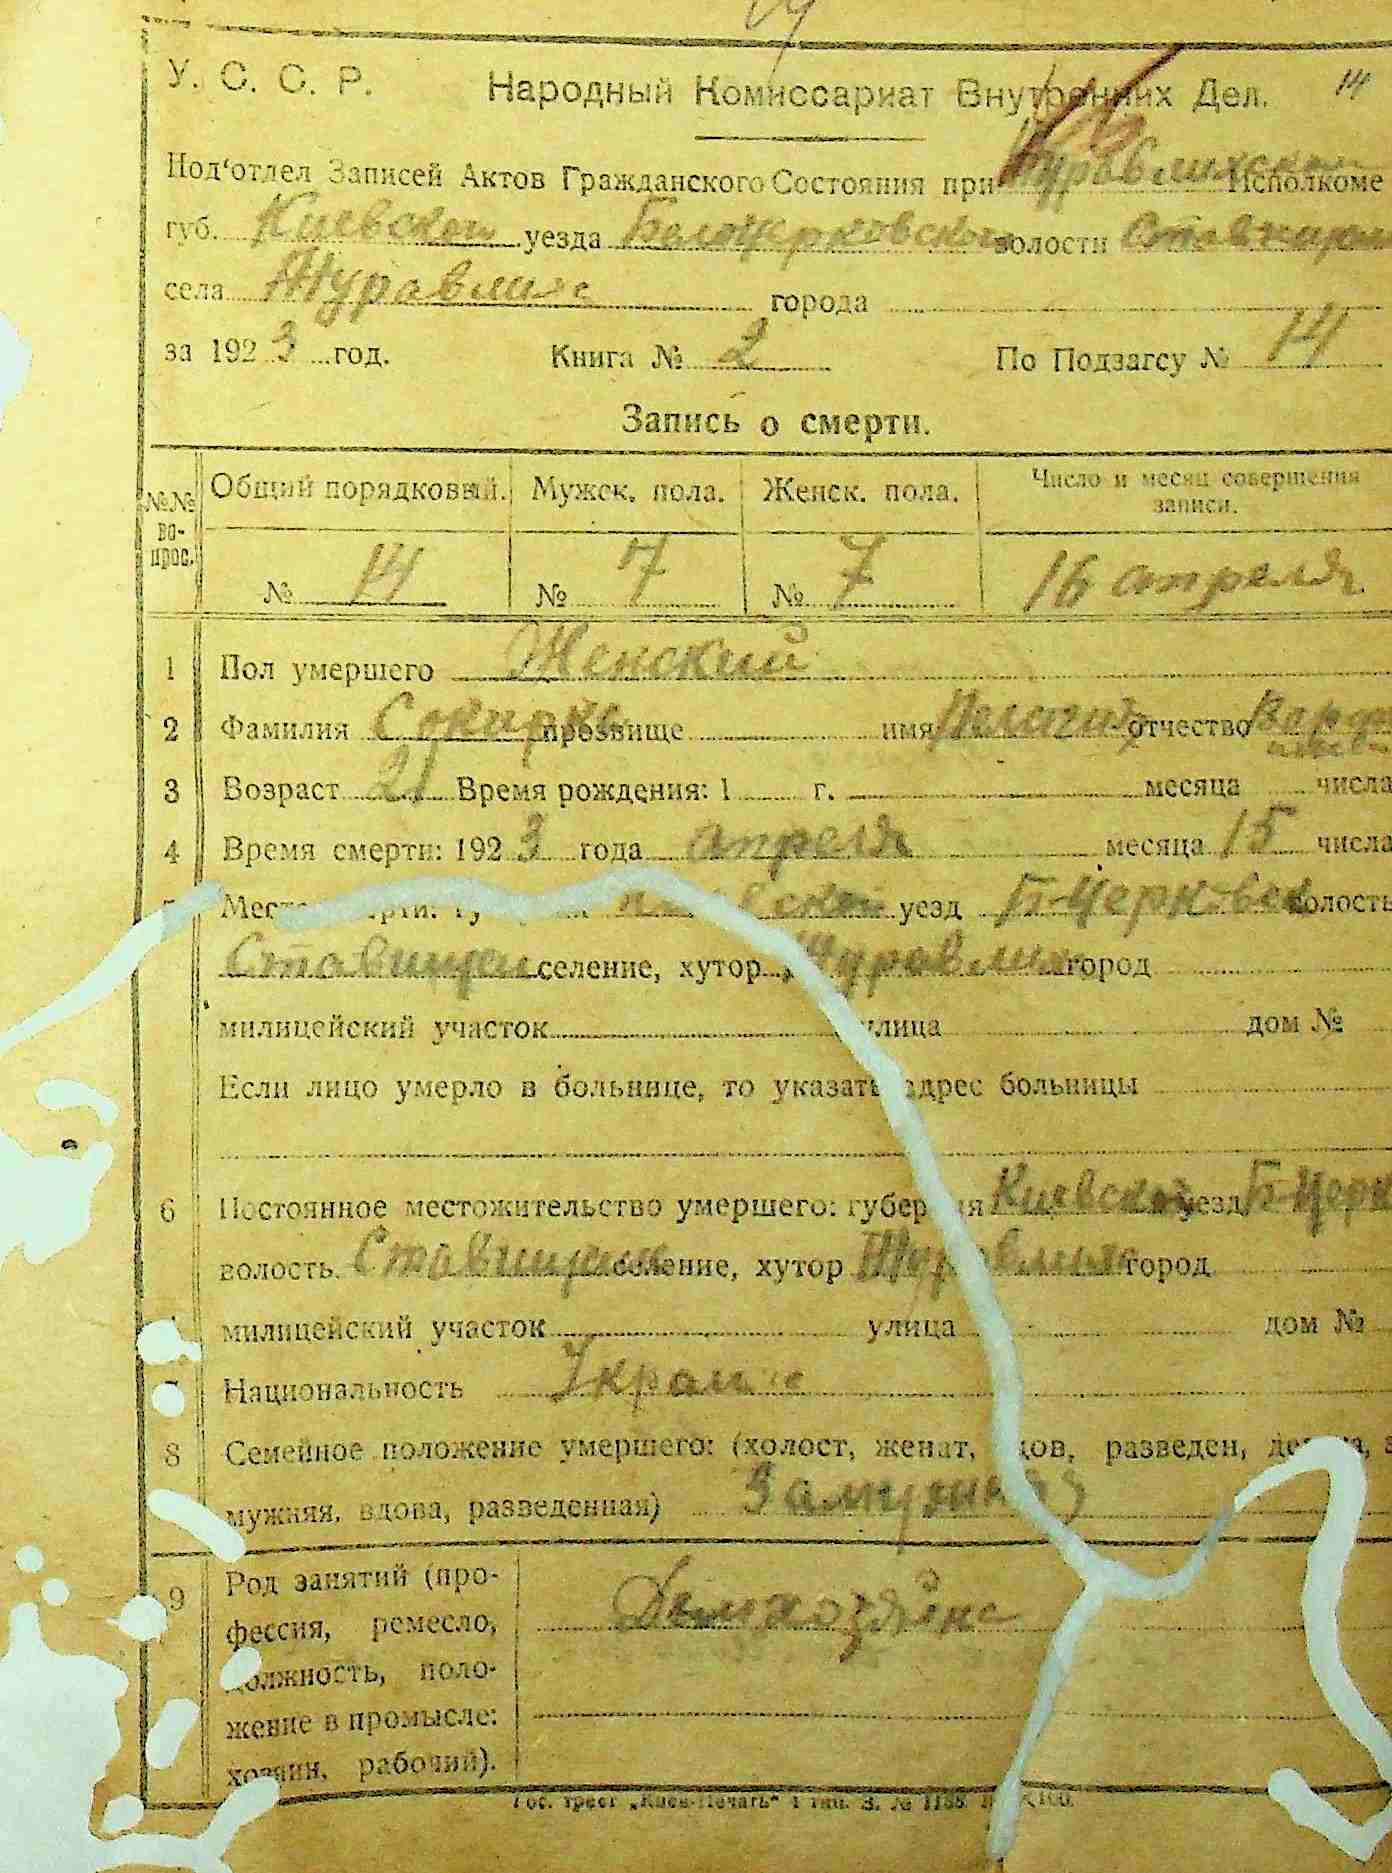 14
У. С. С. Р. Народный Комиссариат Внутренних Дел. 14
Под'отдел Записей Актов Гражданского Состояния при Исполкоме
губ. Киевской уезда Белоцерковского волости
села Журавлихе города
за 1923 год. Книга № 2 По Подзагсу № 14
Запись о смерти.
№№ вопрос. Общий порядковый. Мужск. пола. Женск. пола. Число и месяц совершения записи.
№ 14 № 7 № 7 16 апреля
1 Пол умершего Женский
2 Фамилия прозвище имя отчество
3 Возраст 21 Время рождения: 1 г. месяца числа
4 Время смерти: 1923 года апреля месяца 15 числа
уезд Б-Церковск волость
Ставищен селение, хутор город
милицейский участок улица дом №
Если лицо умерло в больнице, то указать адрес больницы
6 Постоянное местожительство умершего: губерния Киевской уезд Б-Церк
волость селение, хутор город
милицейский участок улица дом №
Национальность Украин
8 Семейное положение умершего: (холост, женат, вдов, разведен,
мужняя, вдова, разведенная) Замужняя
9 Род занятий (про-
фессия, ремесло,
должность, поло-
жение в промысле:
хозяин, рабочий).
Домхозяйс
Гос. трест „Киев-Печать“